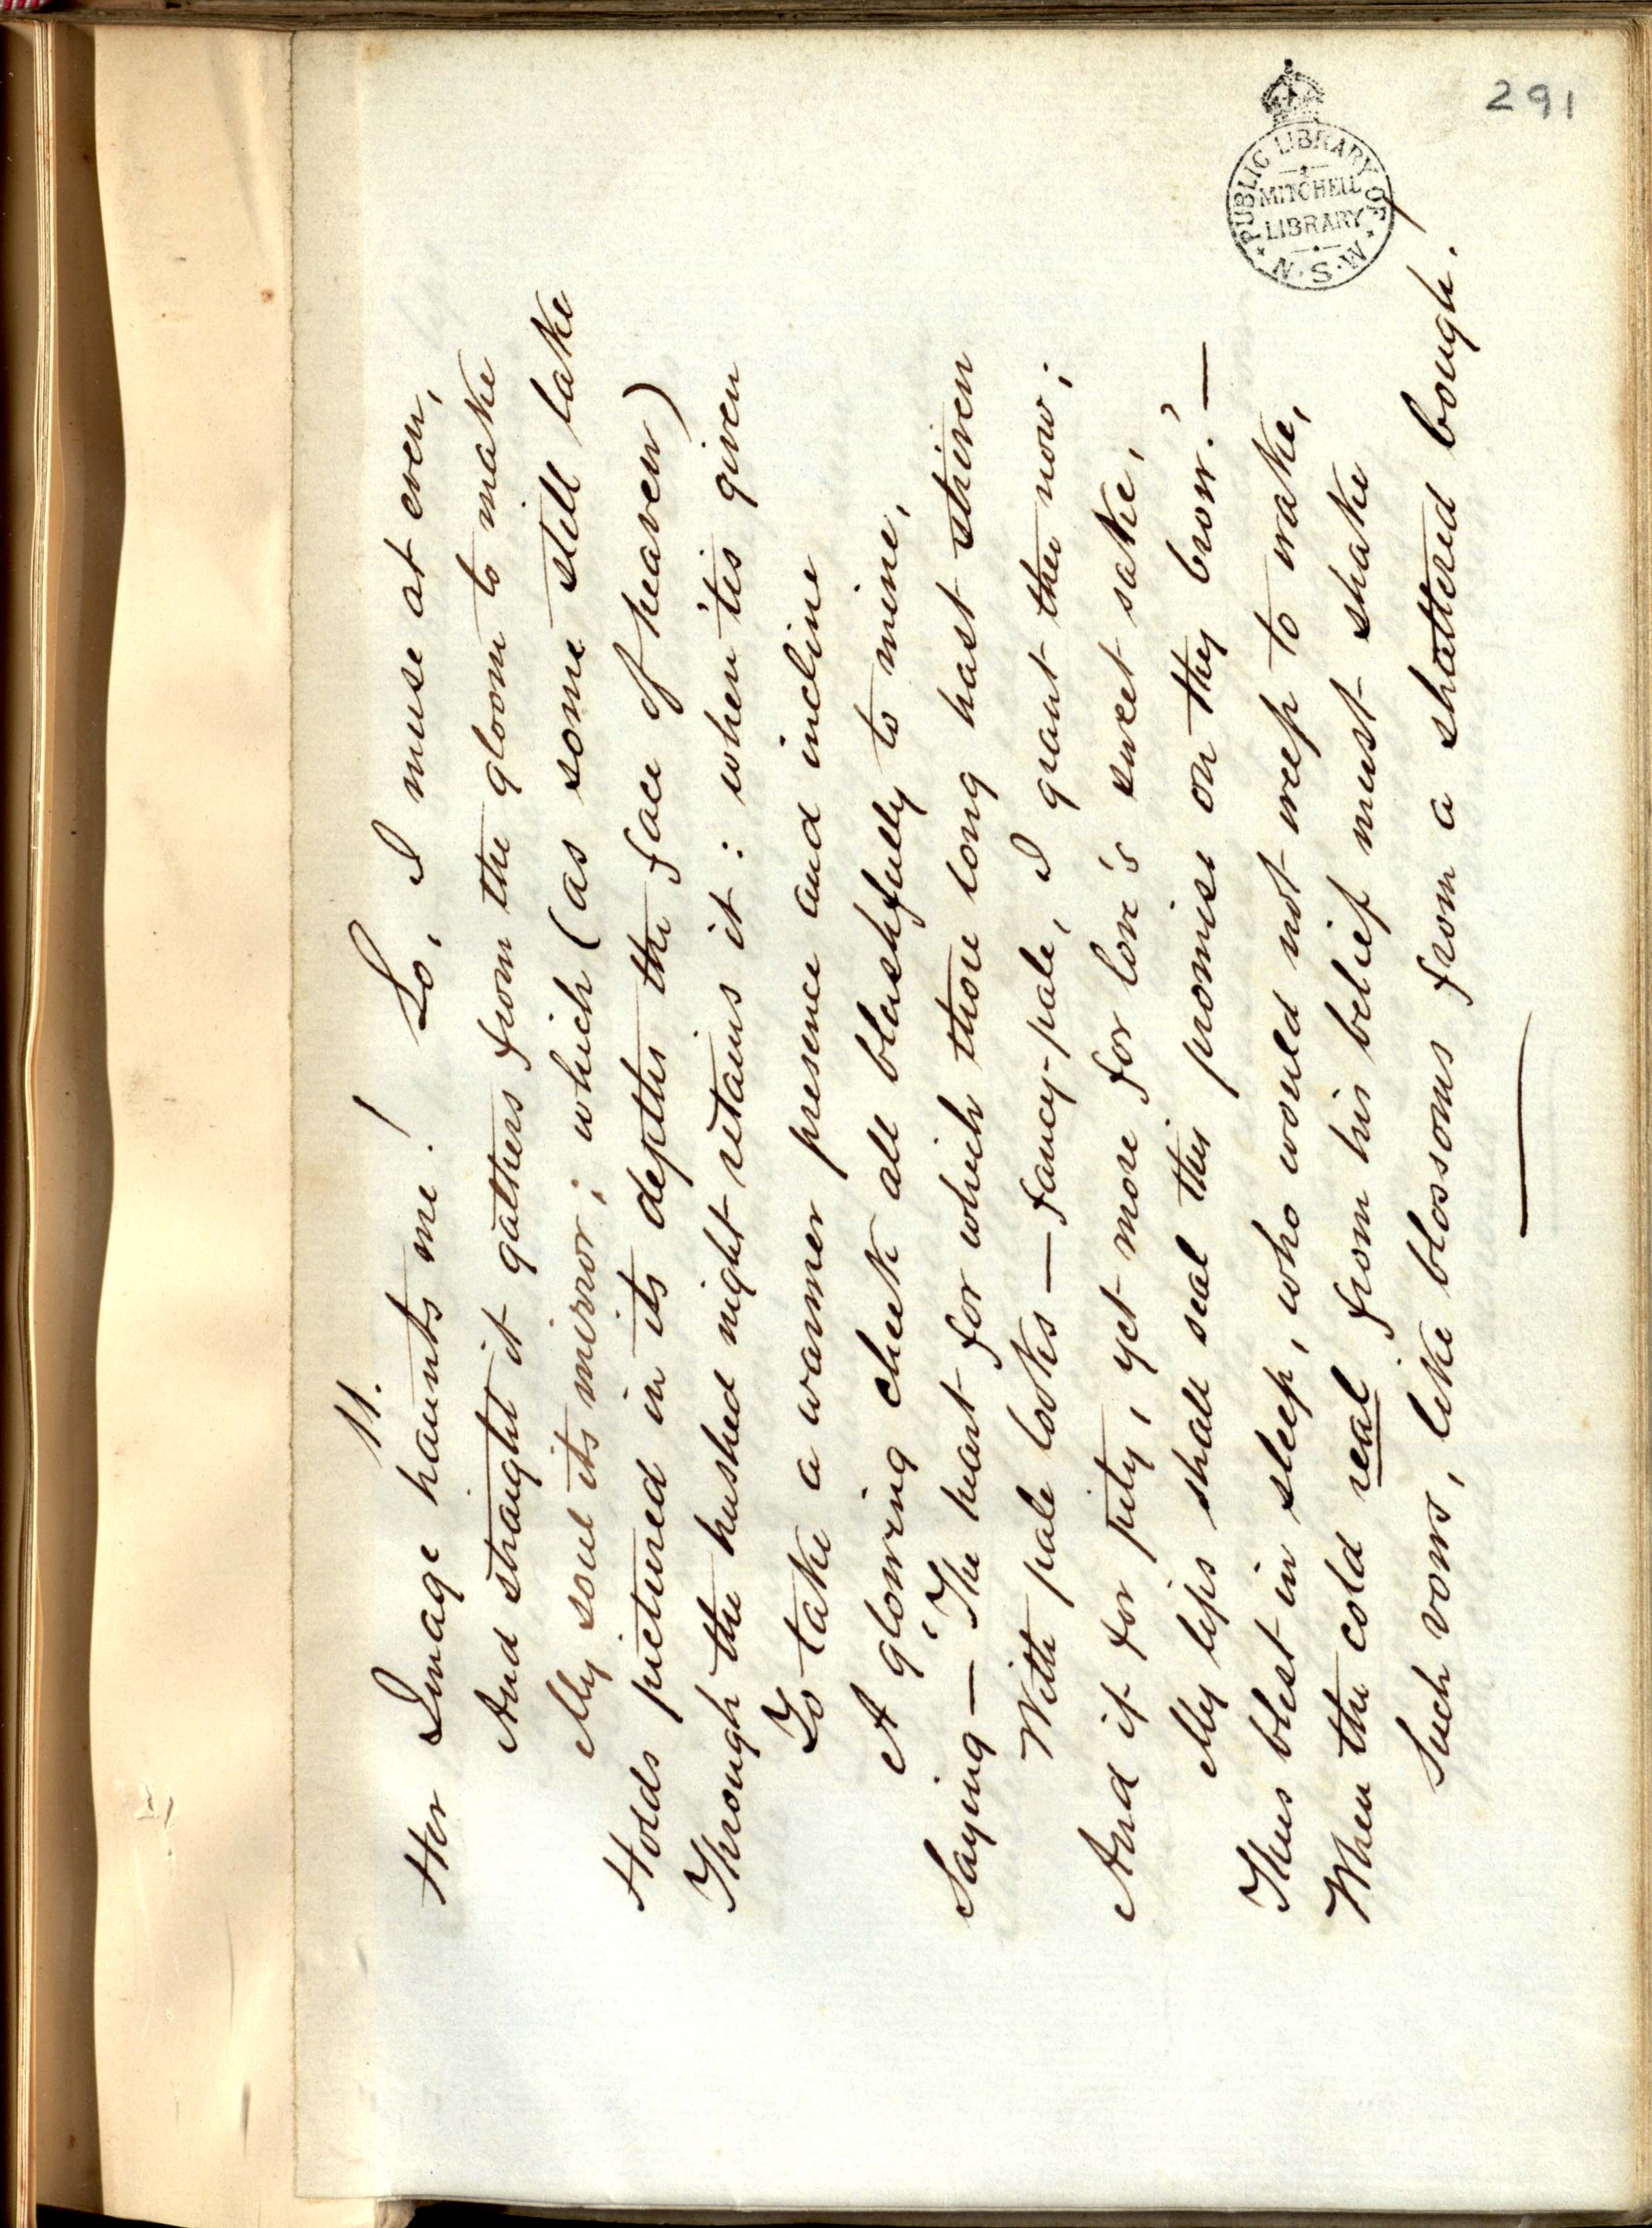 291
PUBLIC LIBRARY OF N.S.W.
MITCHELL
LIBRARY
11.
Her Image haunts me! Lo, I muse at even,
And straight it gathers from the gloom to make
My soul its mirror; which (as some still lake
Holds pictured in its depths the face of heaven)
Through the hushed night retains it: when 'tis given
To take a warmer presence and incline
A glowing cheek all blushfully to mine,
Saying — 'The heart for which thou long hast striven
With pale looks — fancy-pale, I grant thee now;
And if for pity, yet more for love's sweet sake,
My lips shall seal this promise on thy brow.' —
Thus blest in sleep, who would not weep to wake,
When the cold real from his belief must shake
Such vows, like blossoms from a shattered bough!